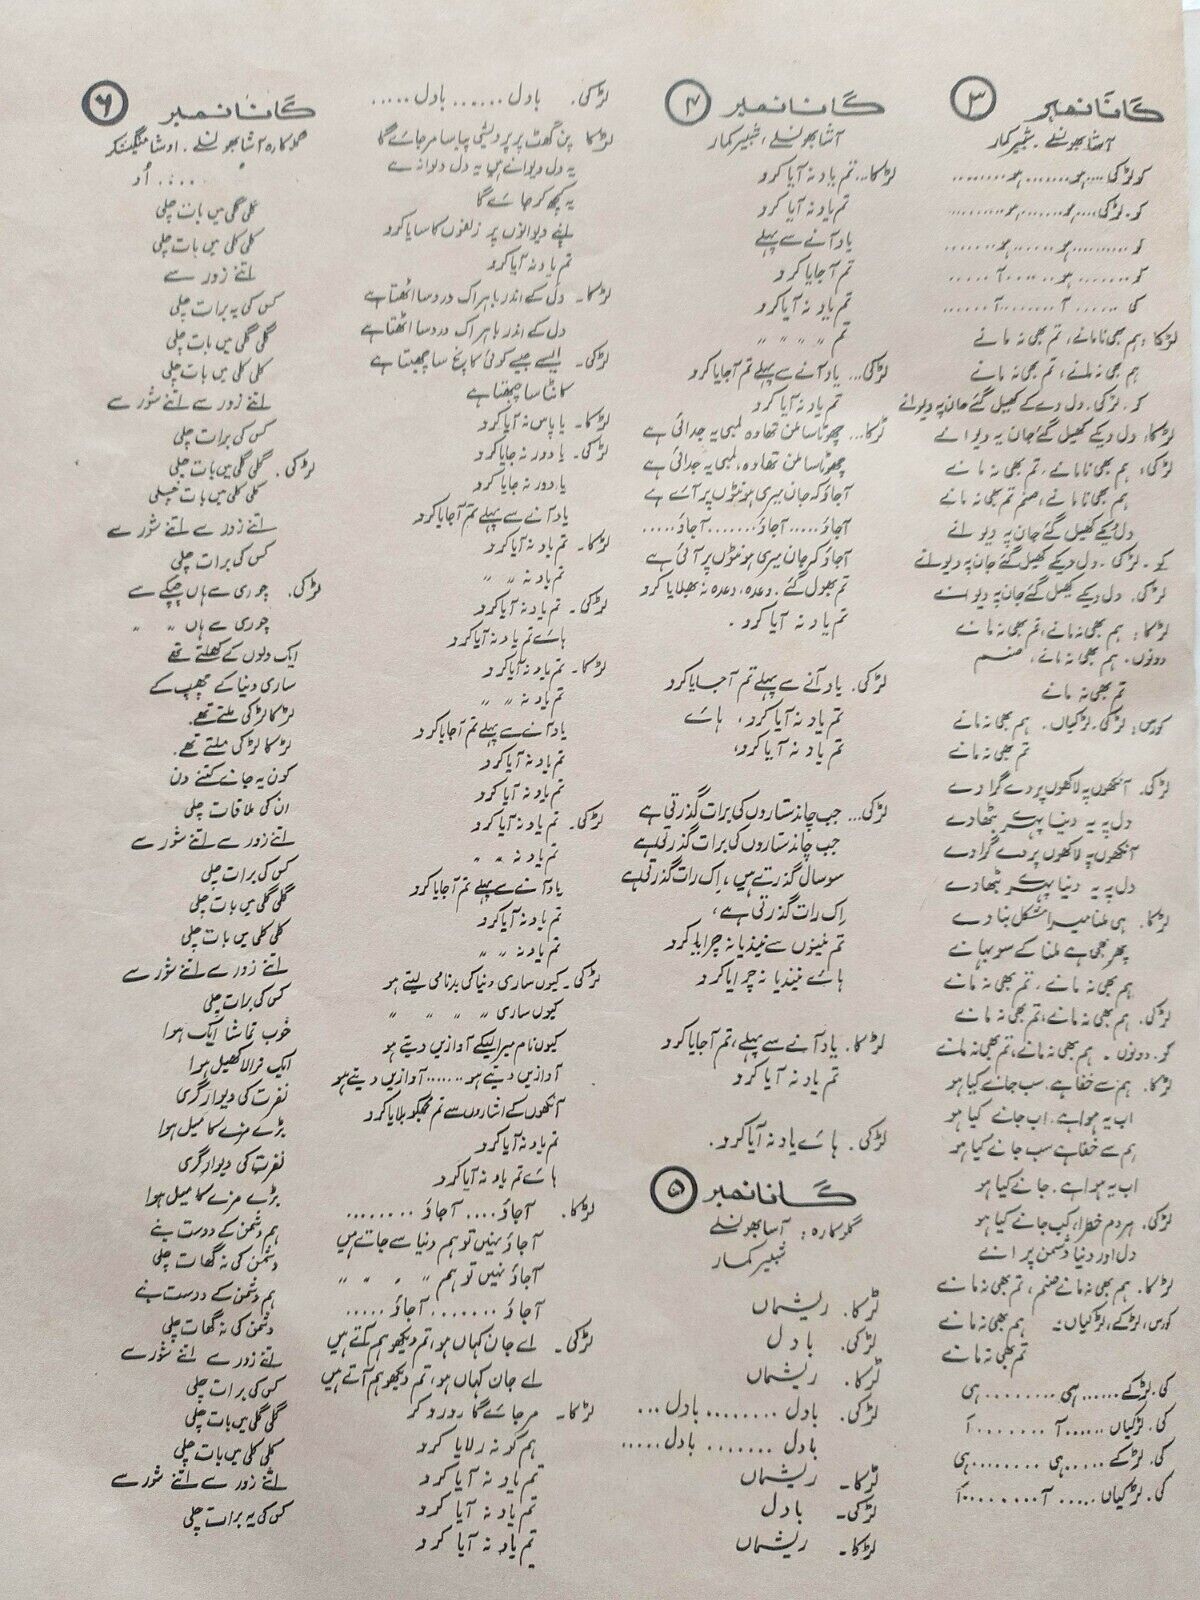 گانا نمبر ۳
آشا بھونسلے ۔ شبیر کمار
کو لڑکی .... ہو ....... ہو ........
کو ۔ لڑکی .... ہو ........ ہو ........
کو .......... ہو ...... ہو .......
کو ........ ہو ...... آ .....
کی ...... آ ........ آ ......
لڑکا : ہم بھی نا مانے، تم بھی نہ مانے
ہم بھی نہ مانے، تم بھی نہ مانے
کو ۔ لڑکی ۔ دل دے کے کھیل گئے جان پہ دیوانے
لڑکا: دل دیکے کھیل گئے جان پہ دیوانے
لڑکی: ہم بھی نا مانے، تم بھی نہ مانے
ہم بھی نا مانے، صنم تم بھی نہ مانے
دل دیکے کھیل گئے جان پہ دیوانے
کو ۔ لڑکی ۔ دل دیکے کھیل گئے جان پہ دیوانے
لڑکی۔ دل دیکے کھیل گئے جان پہ دیوانے
لڑکا: ہم بھی نہ مانے، تم بھی نہ مانے
دونوں۔ ہم بھی نہ مانے، صنم
تم بھی نہ مانے
کورس: لڑکی۔ لڑکیاں۔ ہم بھی نہ مانے
تم بھی نہ مانے
لڑکی۔ آنکھوں پہ لاکھوں پردے گرا دے
دل پہ یہ دنیا پہرے بٹھا دے
آنکھوں پہ لاکھوں پردے گرا دے
دل پہ یہ دنیا پہرے بٹھا دے
لڑکا۔ ہی ملنا میرا مشکل بنا دے
پھر بھی ہے ملنا کے سو بہانے
ہم بھی نہ مانے، تم بھی نہ مانے
لڑکی۔ ہم بھی نہ مانے، تم بھی نہ مانے
کو۔ دونوں ۔ ہم بھی نہ مانے، تم بھی نہ مانے
لڑکا۔ ہم سے خفا ہے، سب جانے کیا ہو
اب یہ ہوا ہے، اب جانے کیا ہو
ہم سے خفا ہے سب جانے کیا ہو
اب یہ ہوا ہے، جانے کیا ہو
لڑکی۔ ہر دم خطرا، کب جانے کیا ہو
دل اور دنیا دشمن پرانے
لڑکا۔ ہم بھی نہ مانے صنم، تم بھی نہ مانے
کورس، لڑکے، لڑکیاں :۔ ہم بھی نہ مانے
تم بھی نہ مانے
کی۔ لڑکے ...... ہی ........ ہی
کی۔ لڑکیاں ...... آ ....... آ
کی۔ لڑکے ..... ہی ........ ہی
کی۔ لڑکیاں ..... آ ........ آ
گانا نمبر ۴
آشا بھونسلے ، شبیر کمار
لڑکا... تم یاد نہ آیا کرو
تم یاد نہ آیا کرو
یاد آنے سے پہلے
تم آجایا کرو
تم یاد نہ آیا کرو
تم 〃 〃 〃 〃
لڑکی... یاد آنے سے پہلے تم آجایا کرو
تم یاد نہ آیا کرو
لڑکا... چھوٹا سا ملن تھا وہ لمبی یہ جدائی ہے
چھوٹا سا ملن تھا وہ، لمبی یہ جدائی ہے
آجاؤ کہ جان میری ہونٹوں پر آئے ہے
آجاؤ ..... آجاؤ ....... آجاؤ .....
آجاؤ کہ جان میری ہونٹوں پر آئی ہے
تم بھول گئے ۔ وعدہ، وعدہ نہ بھلایا کرو
تم یاد نہ آیا کرو ۔
لڑکی۔ یاد آنے سے پہلے تم آجایا کرو
تم یاد نہ آیا کرو ، ہائے
تم یاد نہ آیا کرو،
لڑکی... جب چاند ستاروں کی برات گذرتی ہے
جب چاند ستاروں کی برات گذرتی ہے
سو سال گذرتے ہیں، اِک رات گذرتی ہے
اِک رات گذرتی ہے ،
تم نینوں سے نیندیا نہ چرایا کرو
ہائے نیندیا نہ چرایا کرو
لڑکا۔ یاد آنے سے پہلے، تم آجایا کرو
تم یاد نہ آیا کرو
لڑکی۔ ہائے یاد نہ آیا کرو ۔
گانا نمبر ۵
گلوکارہ : آسا بھونسلے
شبیر کمار
لڑکا۔ ریشماں
لڑکی۔ بادل
لڑکا۔ ریشماں
لڑکی۔ بادل ........ بادل ...
بادل ....... بادل .....
لڑکا۔ ریشماں
لڑکی۔ بادل
لڑکا۔ ریشماں
لڑکی۔ بادل ...... بادل .....
لڑکا پن گھٹ پر پردیشی پیاسا مر جائے گا
یہ دل دیوانے ہیں یہ دل دیوانے
یہ کچھ کر جائے گا
اپنے دیوانوں پر زلفوں کا سایا کرو
تم یاد نہ آیا کرو
لڑکا۔ دل کے اندر باہر اک درد سا اٹھتا ہے
دل کے اندر باہر اک درد سا اٹھتا ہے
لڑکی۔ ایسے جیسے کوئی کانچ سا چبھتا ہے
کانٹا سا چبھتا ہے
لڑکا۔ یا پاس نہ آیا کرو
لڑکی۔ یا دور نہ جایا کرو
یا دور نہ جایا کرو
یاد آنے سے پہلے تم آجایا کرو
لڑکا۔ تم یاد نہ آیا کرو
تم یاد نہ 〃 〃
لڑکی۔ تم یاد نہ آیا کرو
ہائے تم یاد نہ آیا کرو
لڑکا۔ تم یاد نہ آیا کرو
تم یاد نہ 〃 〃
یاد آنے سے پہلے تم آجایا کرو
تم یاد نہ آیا کرو
تم یاد نہ آیا کرو
لڑکی۔ تم یاد نہ آیا کرو
تم یاد نہ 〃 〃
یاد آنے سے پہلے تم آجایا کرو
تم یاد نہ آیا کرو
تم یاد نہ 〃 〃
لڑکی۔ کیوں ساری دنیا کی بدنامی لیتے ہو
کیوں ساری 〃 〃 〃 〃
کیوں نام میرا لیکے آوازیں دیتے ہو
آوازیں دیتے ہو ....... آوازیں دیتے ہو
آنکھوں کے اشاروں سے تم مجھکو بلایا کرو
تم یاد نہ آیا کرو
ہائے تم یاد نہ آیا کرو
لڑکا۔ آجاؤ .... آجاؤ ........
آجاؤ نہیں تو ہم دنیا سے جاتے ہیں
آجاؤ نہیں تو ہم 〃 〃 〃 〃
آجاؤ ....... آجاؤ .....
لڑکی۔ اے جان کہاں ہو، تم دیکھو ہم آتے ہیں
اے جان کہاں ہو، تم دیکھو ہم آتے ہیں
لڑکا۔ مر جائے گا رو رو کر
ہم کو نہ رلایا کرو
تم یاد نہ آیا کرو
تم یاد نہ آیا کرو
تم یاد نہ آیا کرو
گانا نمبر ۶
گلوکارہ آشا بھونسلے ۔ اوشا منگیشکر
...... اُو
گلی گلی میں بات چلی
کلی کلی میں بات چلی
اتنے زور سے
کس کی یہ برات چلی
گلی گلی میں بات چلی
کلی کلی میں بات چلی
اتنے زور سے اتنے شور سے
کس کی برات چلی
لڑکی۔ گلی گلی میں بات چلی
کلی کلی میں بات چلی
اتنے زور سے اتنے شور سے
کس کی برات چلی
لڑکی۔ چوری سے ہاں چپکے سے
چوری سے ہاں 〃 〃
ایک دلوں کے کھلتے تھے
ساری دنیا کے چھپ کے
لڑکا لڑکی ملتے تھے۔
لڑکا لڑکی ملتے تھے۔
کون یہ جانے کتنے دن
ان کی ملاقات چلی
اتنے زور سے اتنے شور سے
کس کی برات چلی
گلی گلی میں بات چلی
کلی کلی میں بات چلی
اتنے زور سے اتنے شور سے
کس کی برات چلی
خوب تماشا ایک ہوا
ایک نرالا کھیل ہوا
نفرت کی دیوار گری
بڑے مزے کا میل ہوا
نفرت کی دیوار گری
بڑے مزے کا میل ہوا
ہم دشمن کے دوست بنے
دشمن کی نہ گھات چلی
ہم دشمن کے دوست بنے
دشمن کی نہ گھات چلی
اتنے زور سے اتنے شور سے
کس کی برات چلی
گلی گلی میں بات چلی
کلی کلی میں بات چلی
اتنے زور سے اتنے شور سے
کس کی یہ برات چلی